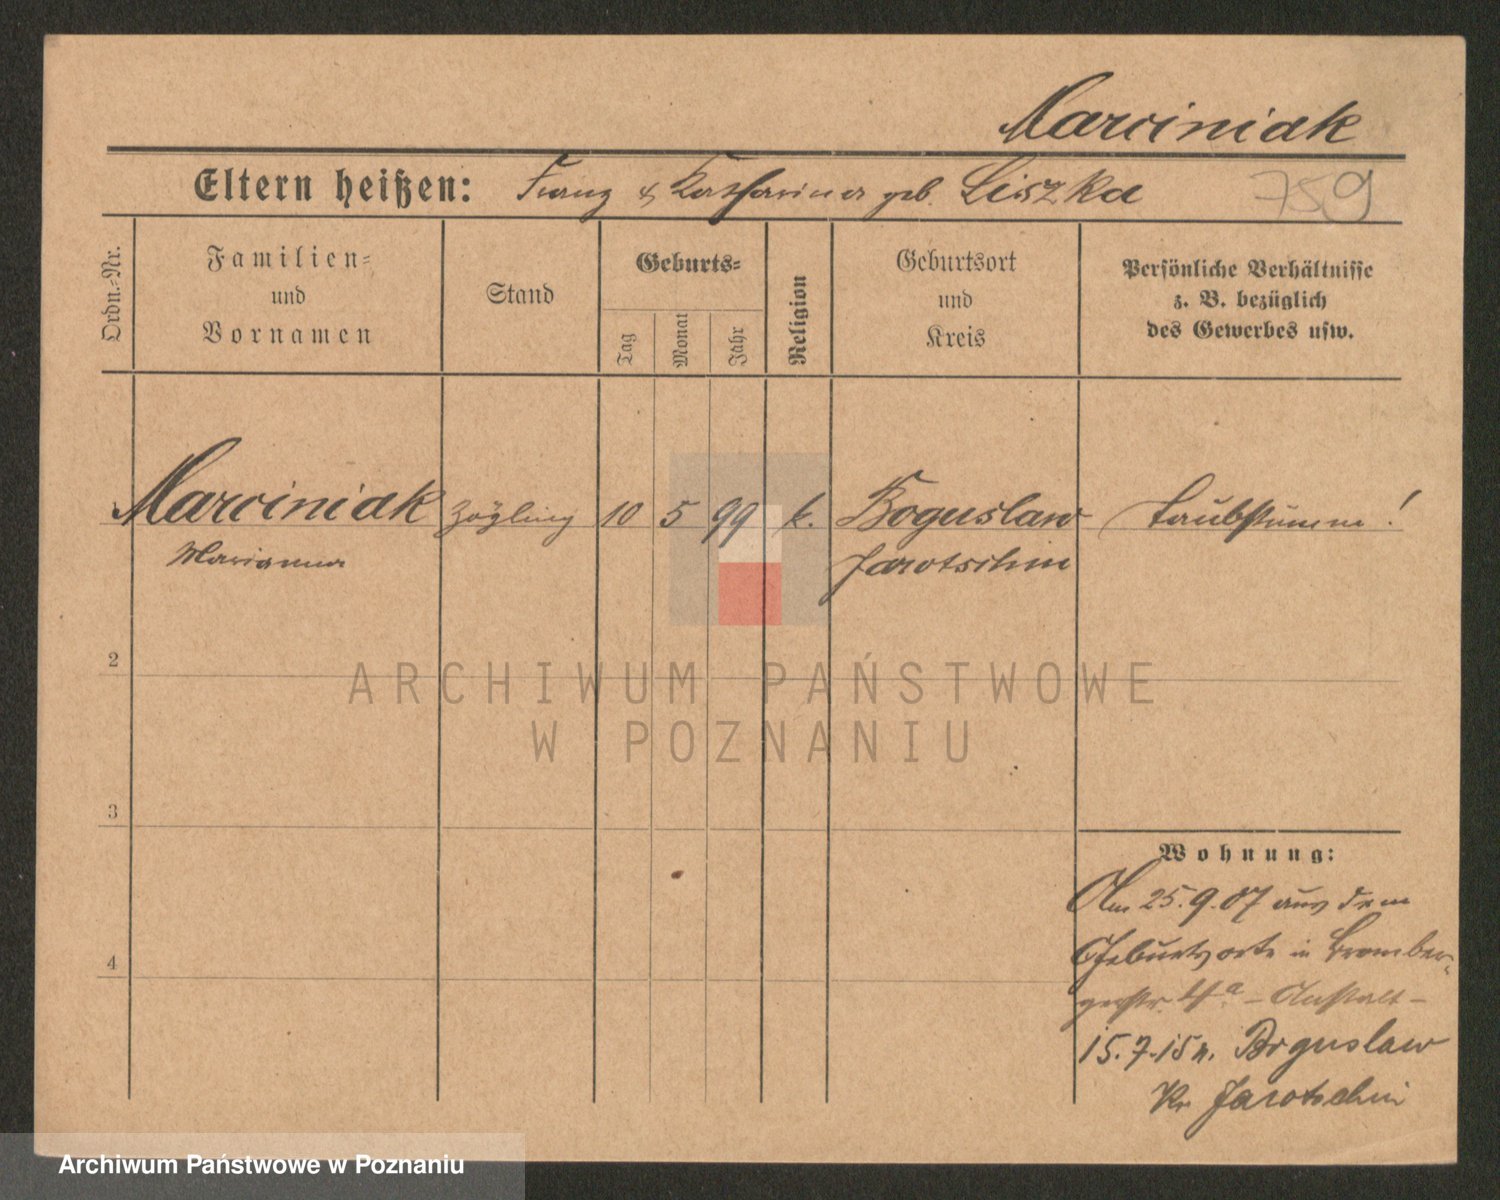 Marciniak
Eltern heißen: Franz & Katharina geb. Liszka 759
Ordn.-Nr.
Familien-
und
Vornamen
Stand
Geburts-
Tag
Monat
Jahr
Religion
Geburtsort
und
Kreis
Persönliche Verhältnisse
z. B. bezüglich
des Gewerbes usw.
Marciniak Zögling 10 5 99 k. Boguslaw Taubstumm!
Marianna Jarotschin
ARCHIWUM PAŃSTWOWE
W POZNANIU
2
3
4
Wohnung:
Am 25.9.07 aus dem
Geburtsorte in Bromber-
gerstr. - Anstalt -
15.7.15 n. Boguslaw
Kr Jarotschin
Archiwum Państwowe w Poznaniu